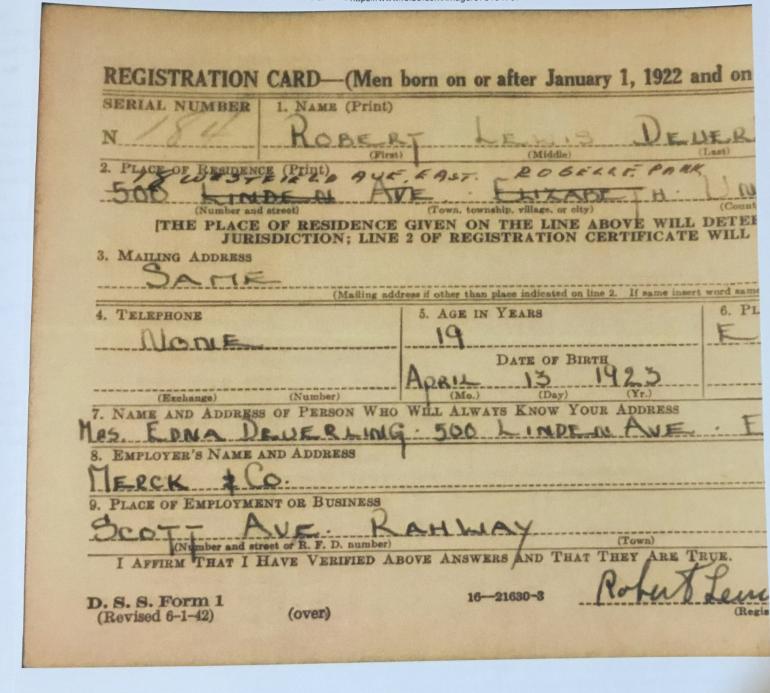 REGISTRATION CARD—(Men born on or after January 1, 1922 and on
SERIAL NUMBER 1. NAME (Print)
N 184 ROBERT LEWIS DEUER
(First) (Middle) (Last)
2. PLACE OF RESIDENCE (Print)
WESTFIELD AVE. EAST. ROSELLE PARK
500 LINDEN AVE. ELIZABETH UN
(Number and street) (Town, township, village, or city) (Count
[THE PLACE OF RESIDENCE GIVEN ON THE LINE ABOVE WILL DETER
JURISDICTION; LINE 2 OF REGISTRATION CERTIFICATE WILL
3. MAILING ADDRESS
SAME
(Mailing address if other than place indicated on line 2. If same insert word same
4. TELEPHONE 5. AGE IN YEARS 6. PL
NONE 19 E
DATE OF BIRTH
APRIL 13 1923
(Exchange) (Number) (Mo.) (Day) (Yr.)
7. NAME AND ADDRESS OF PERSON WHO WILL ALWAYS KNOW YOUR ADDRESS
MRS. EDNA DEUERLING. 500 LINDEN AVE. E
8. EMPLOYER'S NAME AND ADDRESS
MERCK & CO.
9. PLACE OF EMPLOYMENT OR BUSINESS
SCOTT AVE. RAHWAY
(Number and street or R. F. D. number) (Town)
I AFFIRM THAT I HAVE VERIFIED ABOVE ANSWERS AND THAT THEY ARE TRUE.
D. S. S. Form 1 16—21630-3 Robert Lew
(Revised 6-1-42) (over) (Regis